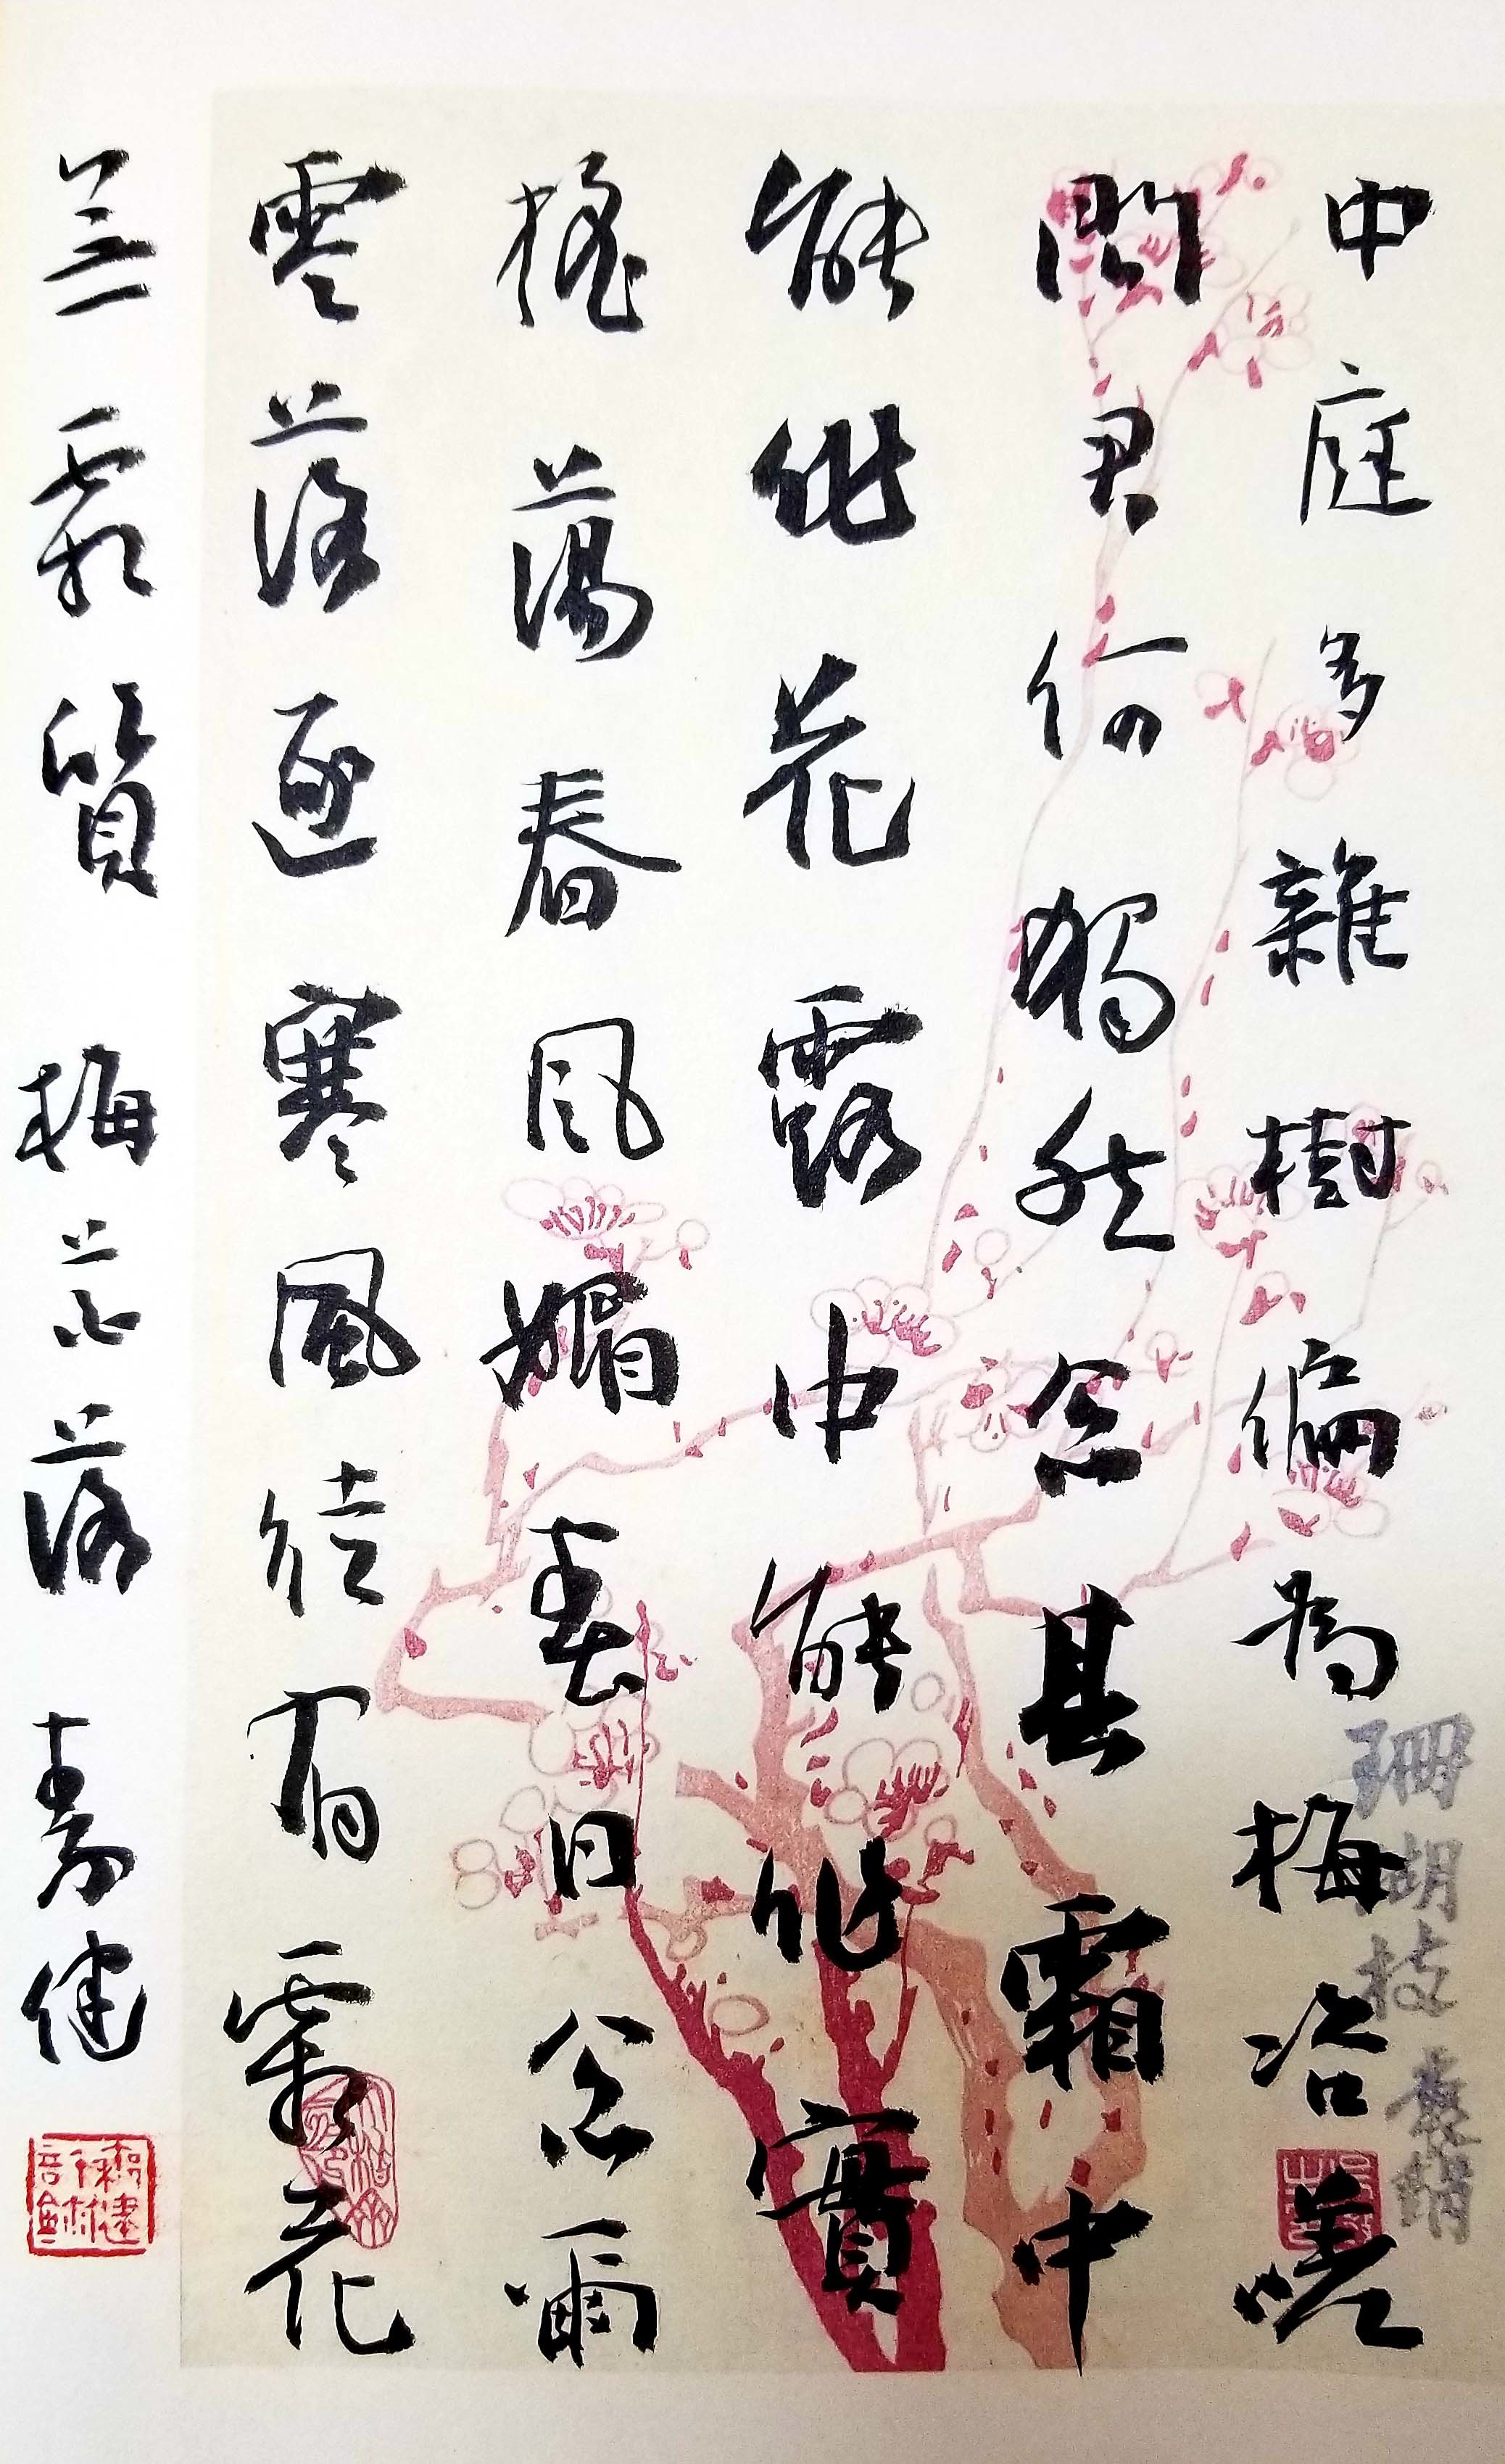 中庭多雜樹偏為梅咨嗟
問君何獨然念其霜中
能作花露中能作實
搖蕩春風媚春日念爾
零落逐寒風徒有霜花
無霜質 梅花落 健
珊瑚枝